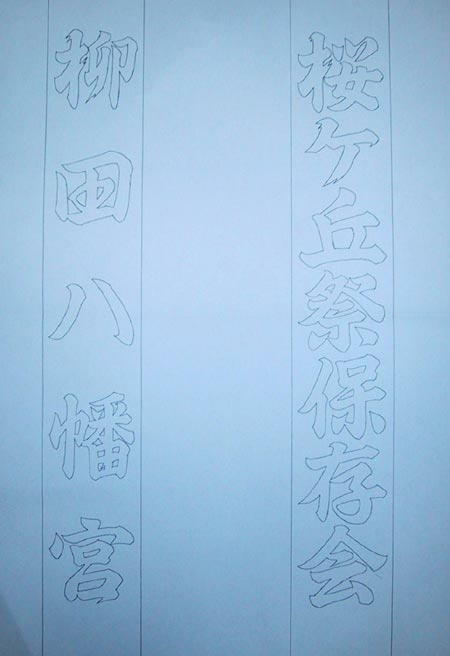 桜ケ丘祭保存会
柳田八幡宮